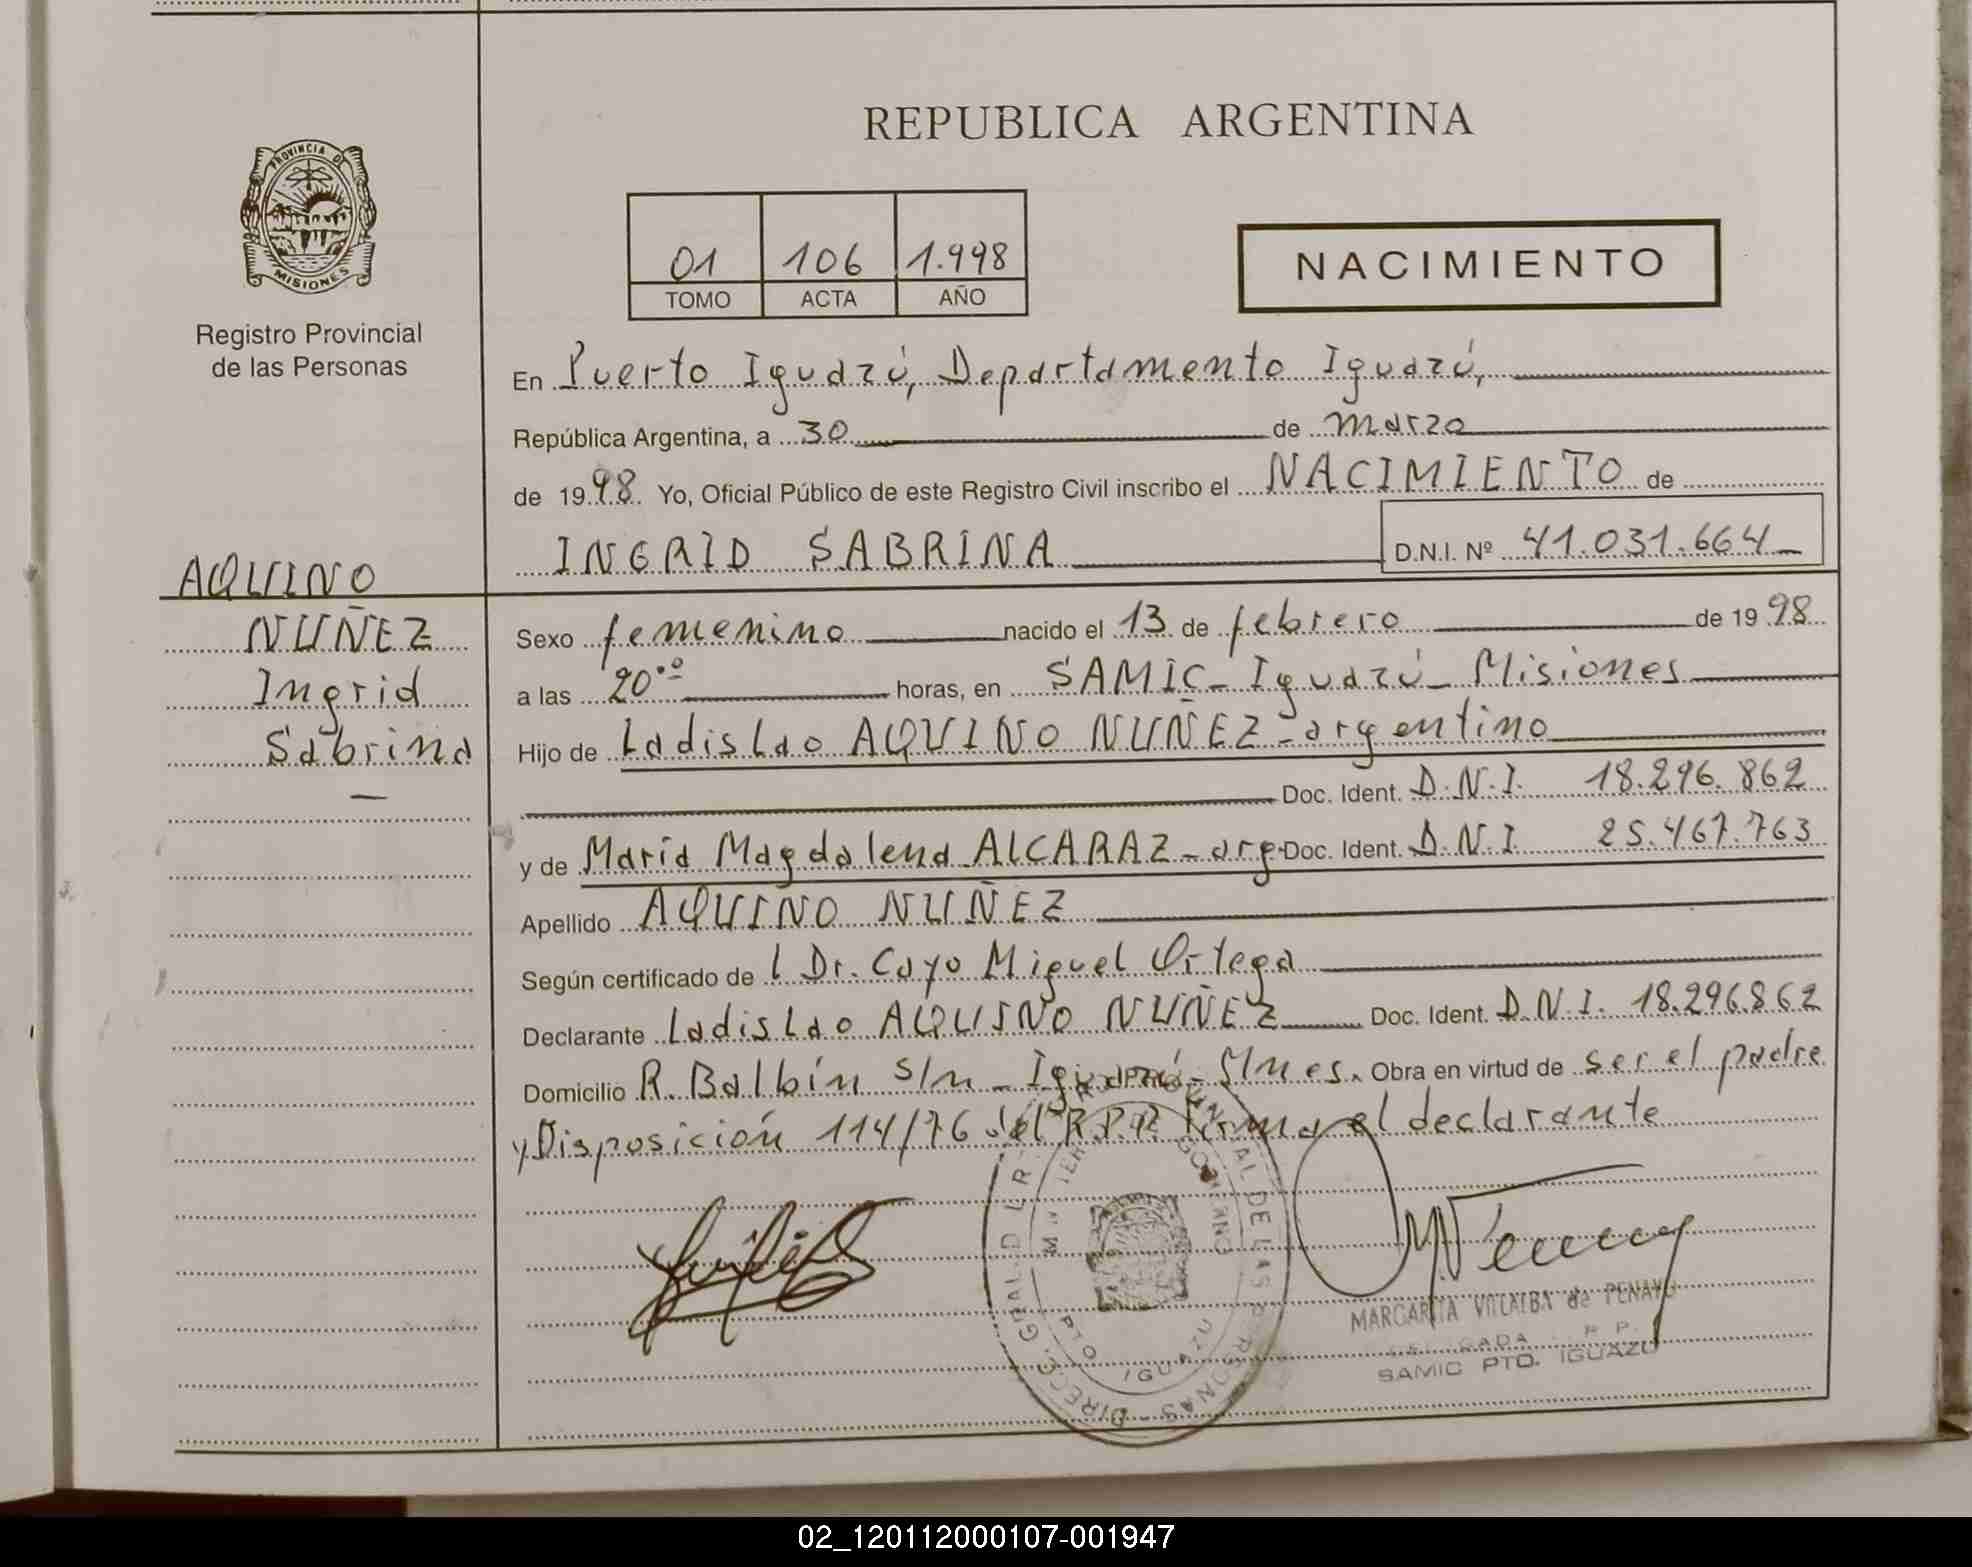 REPUBLICA ARGENTINA
PROVINCIA DE
MISIONES
Registro Provincial
de las Personas
01 106 1.998
TOMO ACTA AÑO
NACIMIENTO
En Puerto Iguazú, Departamento Iguazú,
República Argentina, a 30 de marzo
de 1998. Yo, Oficial Público de este Registro Civil inscribo el NACIMIENTO de
INGRID SABRINA D.N.I. Nº 41.031.664
AQUINO
NUÑEZ
Ingrid
Sabrina
Sexo femenino nacido el 13 de febrero de 1998
a las 20.º horas, en SAMIC - Iguazú - Misiones
Hijo de Ladislao AQUINO NUÑEZ - argentino
Doc. Ident. D.N.I. 18.296.862
y de María Magdalena ALCARAZ - arg. Doc. Ident. D.N.I. 25.467.763
Apellido AQUINO NUÑEZ
Según certificado de l Dr. Cayo Miguel Ortega
Declarante Ladislao AQUINO NUÑEZ Doc. Ident. D.N.I. 18.296.862
Domicilio R. Balbín s/n - Iguazú - Mnes. Obra en virtud de ser el padre
y Disposición 114/76 del R.P.P. Firma el declarante
MARGARITA VILLALBA de PENAYO
SAMIC PTO. IGUAZU
02_120112000107-001947